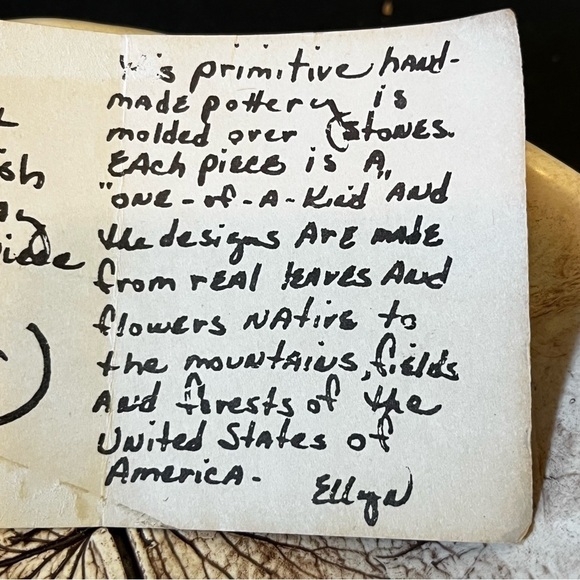 This primitive hand-
made pottery is
molded over stones.
Each piece is a
"one-of-a-kind" and
the designs are made
from real leaves and
flowers native to
the mountains, fields
and forests of the
United States of
America.
Ellyn